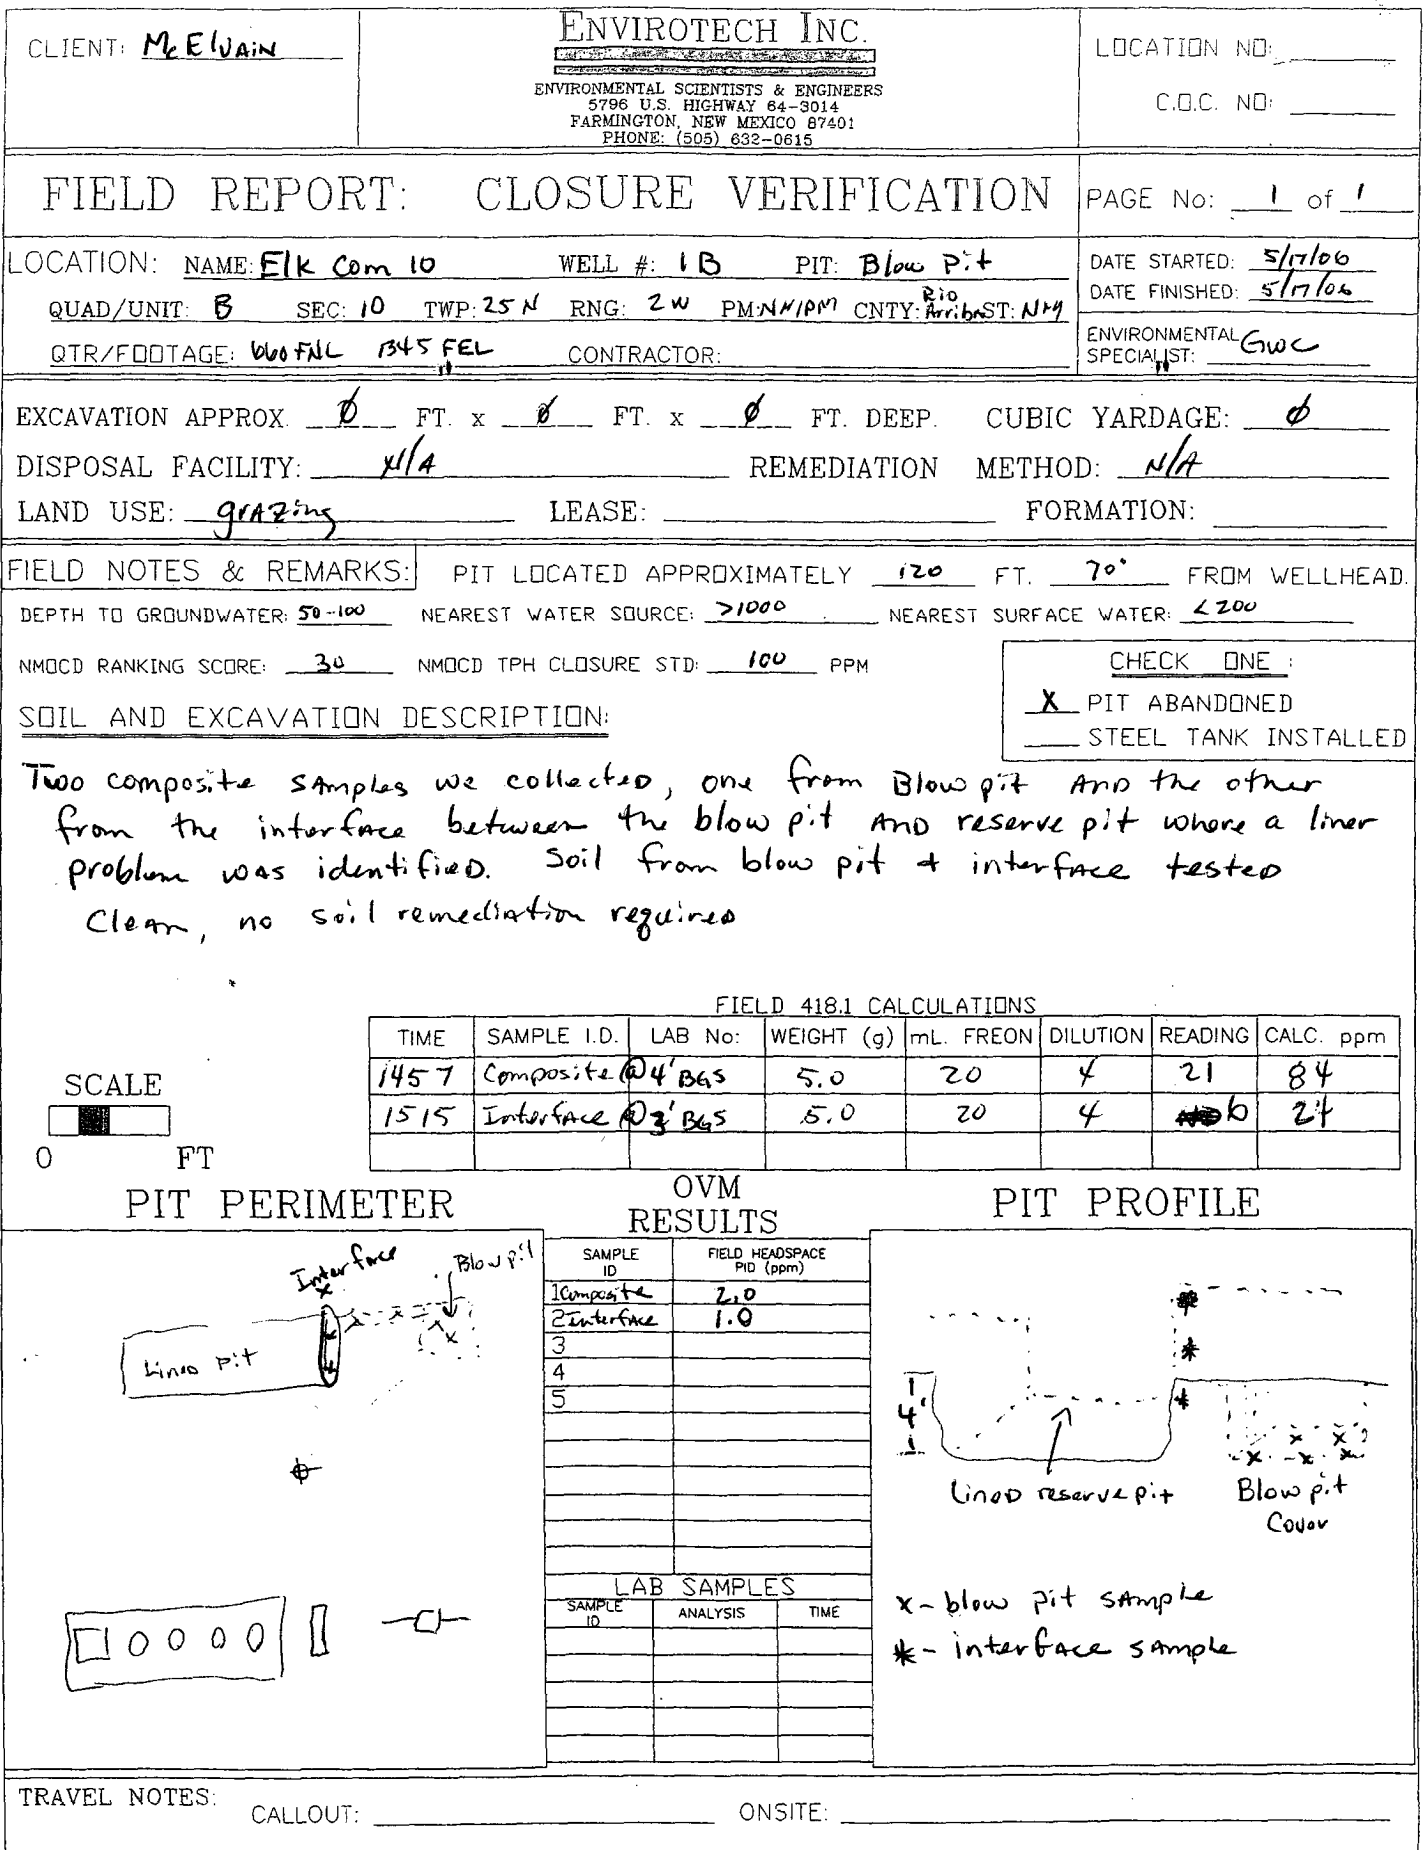 CLIENT: McElvain
ENVIROTECH INC.
ENVIRONMENTAL SCIENTISTS & ENGINEERS
5796 U.S. HIGHWAY 64-3014
FARMINGTON, NEW MEXICO 87401
PHONE: (505) 632-0615
LOCATION NO:
C.O.C. NO:
FIELD REPORT: CLOSURE VERIFICATION
PAGE No: 1 of 1
LOCATION: NAME: Elk Com 10 WELL #: 1B PIT: Blow Pit
QUAD/UNIT: B SEC: 10 TWP: 25 N RNG: 2 W PM: NMPM CNTY: Rio Arriba ST: NM
QTR/FOOTAGE: 660 FNL 1345 FEL CONTRACTOR:
DATE STARTED: 5/17/06
DATE FINISHED: 5/17/06
ENVIRONMENTAL
SPECIALIST: GWC
EXCAVATION APPROX. Ø FT. x Ø FT. x Ø FT. DEEP. CUBIC YARDAGE: Ø
DISPOSAL FACILITY: N/A REMEDIATION METHOD: N/A
LAND USE: grazing LEASE: FORMATION:
FIELD NOTES & REMARKS: PIT LOCATED APPROXIMATELY 120 FT. 70° FROM WELLHEAD.
DEPTH TO GROUNDWATER: 50-100 NEAREST WATER SOURCE: >1000 NEAREST SURFACE WATER: <200
NMOCD RANKING SCORE: 30 NMOCD TPH CLOSURE STD: 100 PPM
CHECK ONE :
X PIT ABANDONED
STEEL TANK INSTALLED
SOIL AND EXCAVATION DESCRIPTION:
Two composite samples we collected, one from Blow pit and the other
from the interface between the blow pit and reserve pit where a liner
problem was identified. Soil from blow pit + interface tested
Clean, no soil remediation required
FIELD 418.1 CALCULATIONS
TIME SAMPLE I.D. LAB No: WEIGHT (g) mL. FREON DILUTION READING CALC. ppm
1457 Composite @ 4' BGS 5.0 20 4 21 84
1515 Interface @ 3' BGS 5.0 20 4 6 24
SCALE
0 FT
PIT PERIMETER
Interface
Blow pit
Lined pit
OVM
RESULTS
SAMPLE ID FIELD HEADSPACE PID (ppm)
1 Composite 2.0
2 Interface 1.0
3
4
5
LAB SAMPLES
SAMPLE ID ANALYSIS TIME
PIT PROFILE
4'
Lined reserve pit
Blow pit
Cover
x - blow pit sample
* - interface sample
TRAVEL NOTES:
CALLOUT: ONSITE: